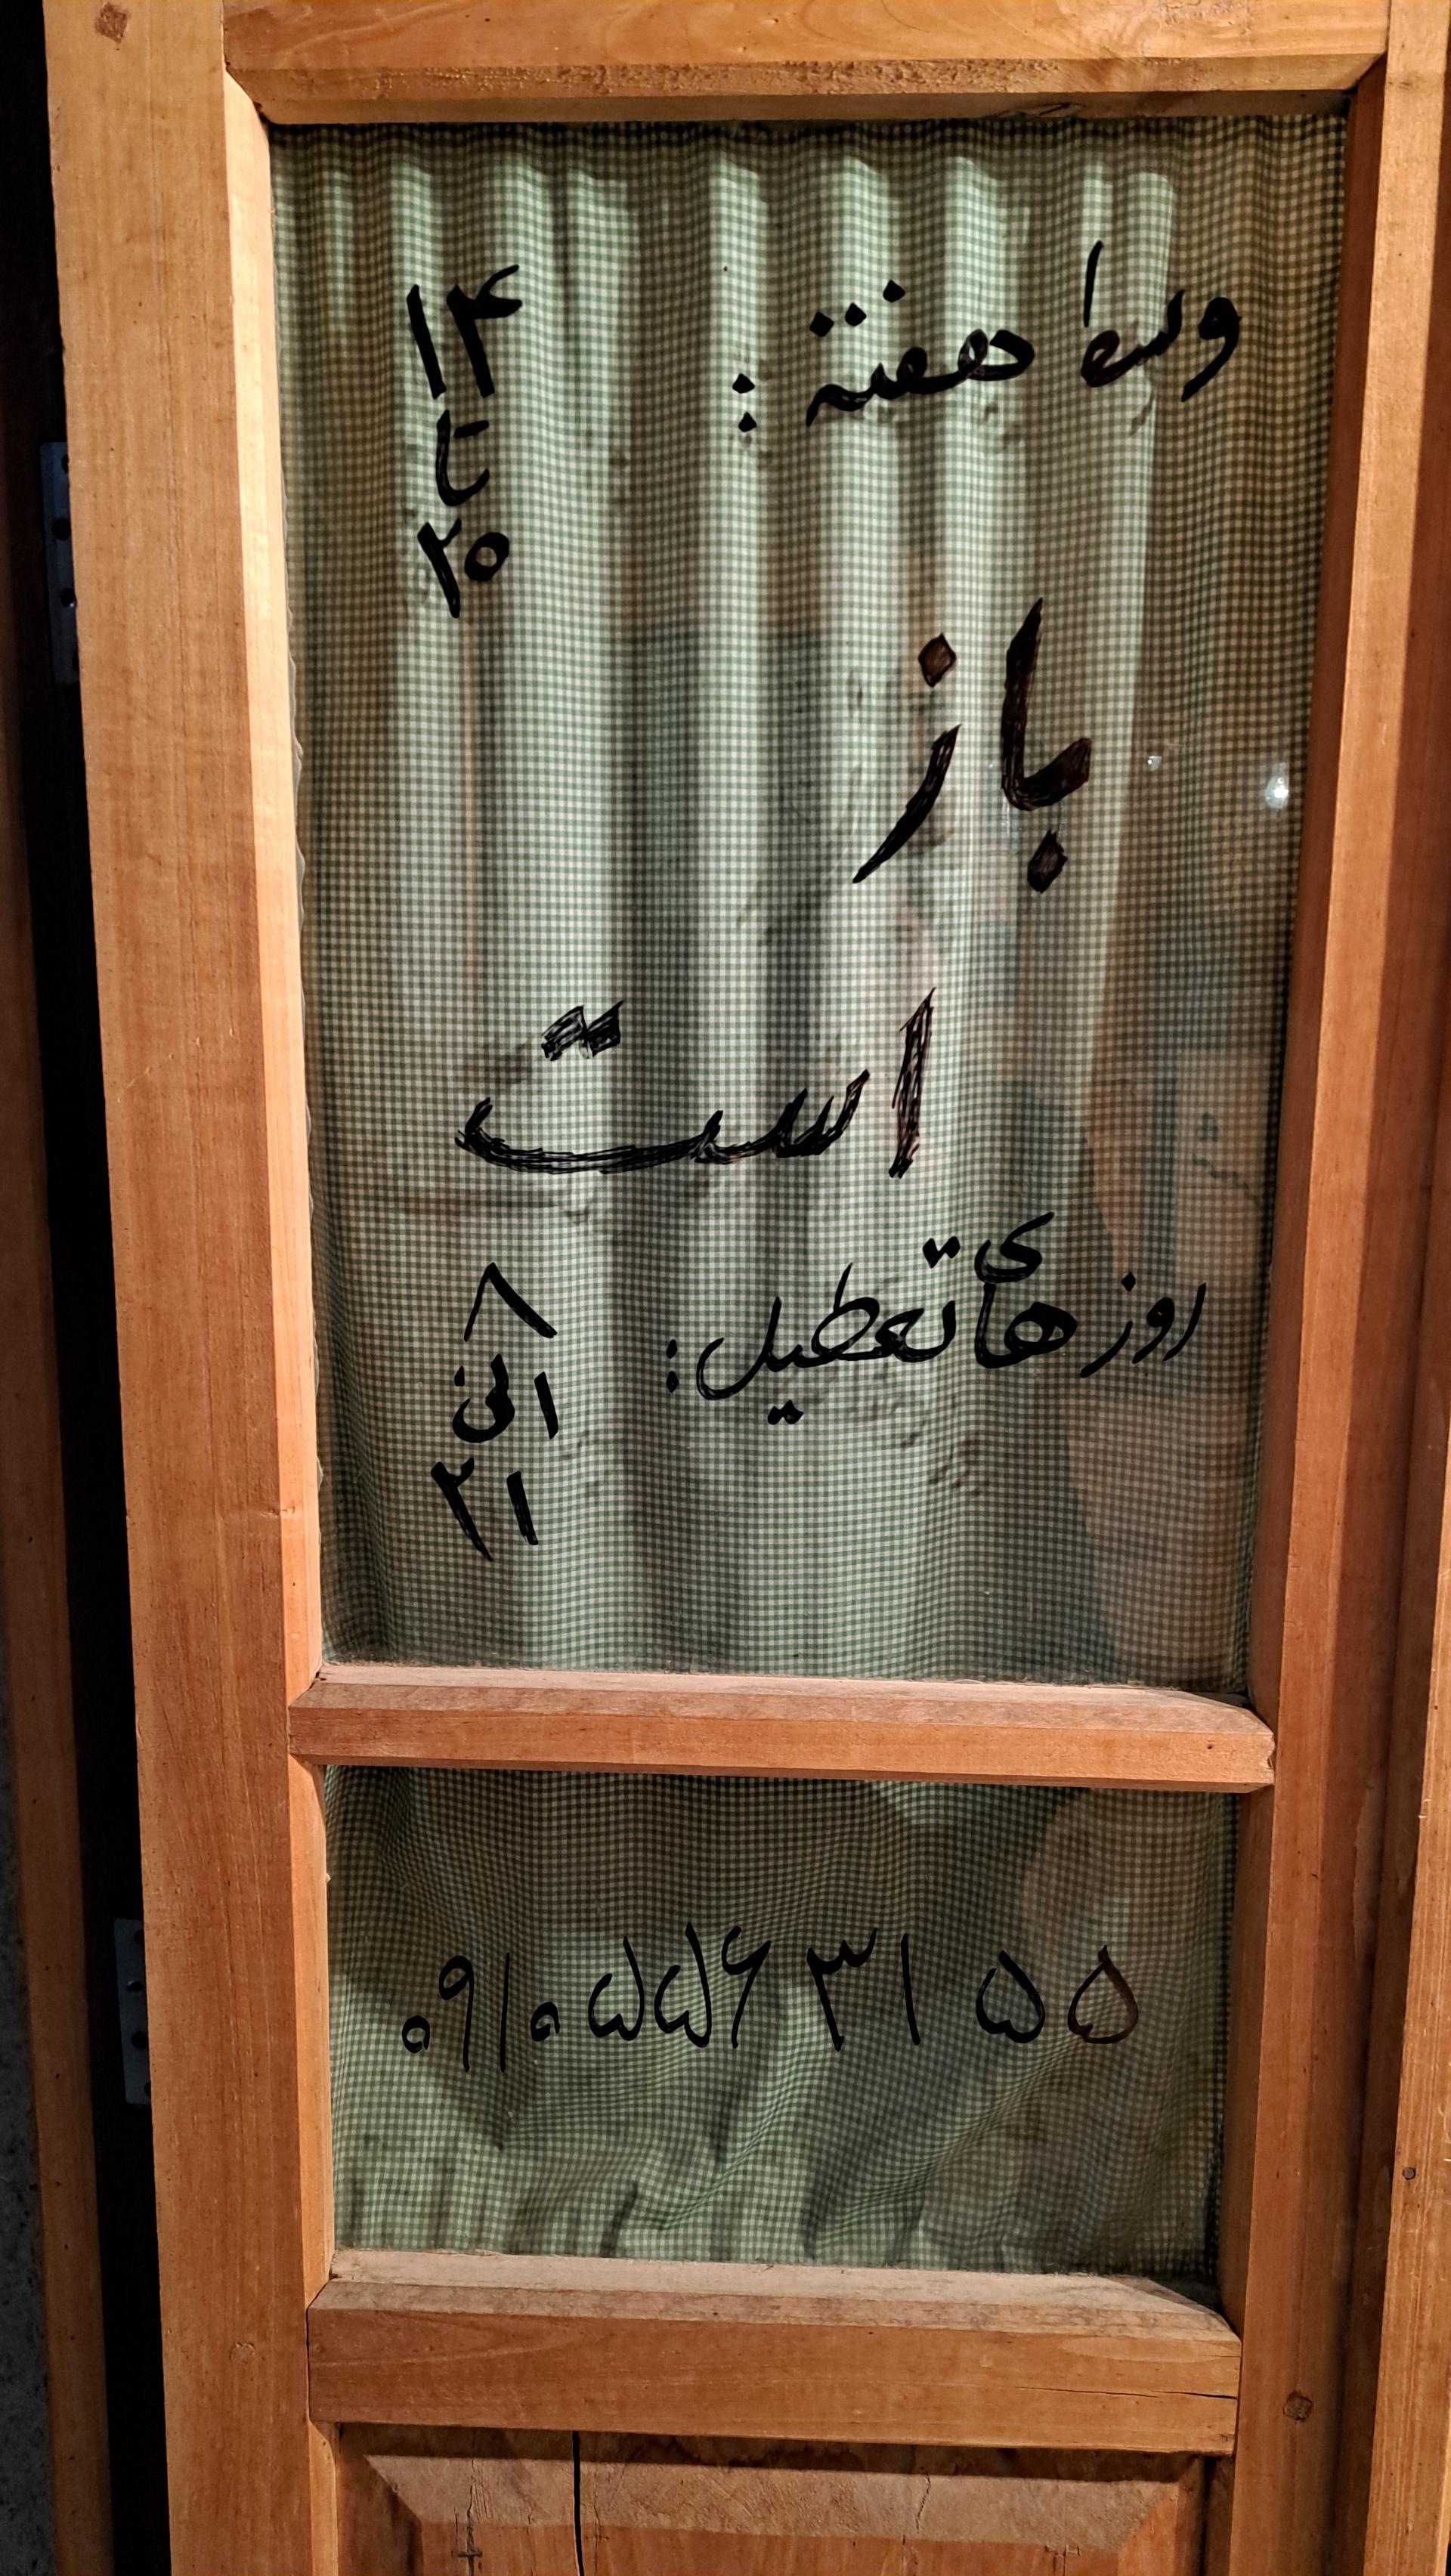 وسط هفته : ۱۴
تا
۲۰
باز
است
روزهای تعطیل : ۸
الی
۲۱
۰۹۱۰۵۵۶۳۱۵۵